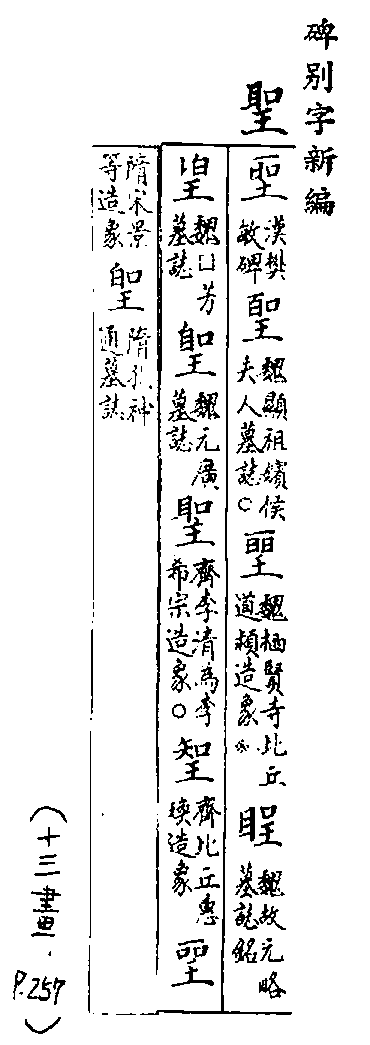 碑别字新編
聖
聖 漢樊敏碑 聖 魏顯祖嬪侯夫人墓誌○ 聖 魏栖賢寺比丘道頵造象 聖 魏故元略墓誌銘
聖 魏囗芳墓誌 聖 魏元廣墓誌 聖 齊李清為李希宗造象○ 聖 齊比丘惠瑛造象 聖
隋宋景等造象 聖 隋孔神通墓誌
(十三畫.
P.257)